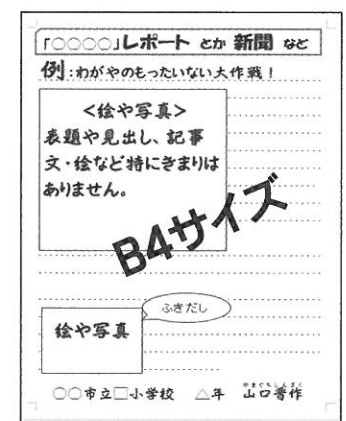 「○○○○」レポート とか 新聞 など
例：わがやのもったいない大作戦！
＜絵や写真＞
表題や見出し、記事
文・絵など特にきまりは
ありません。
B4サイズ
ふきだし
絵や写真
○○市立□小学校 △年 山口晋作
やまぐちしんさく